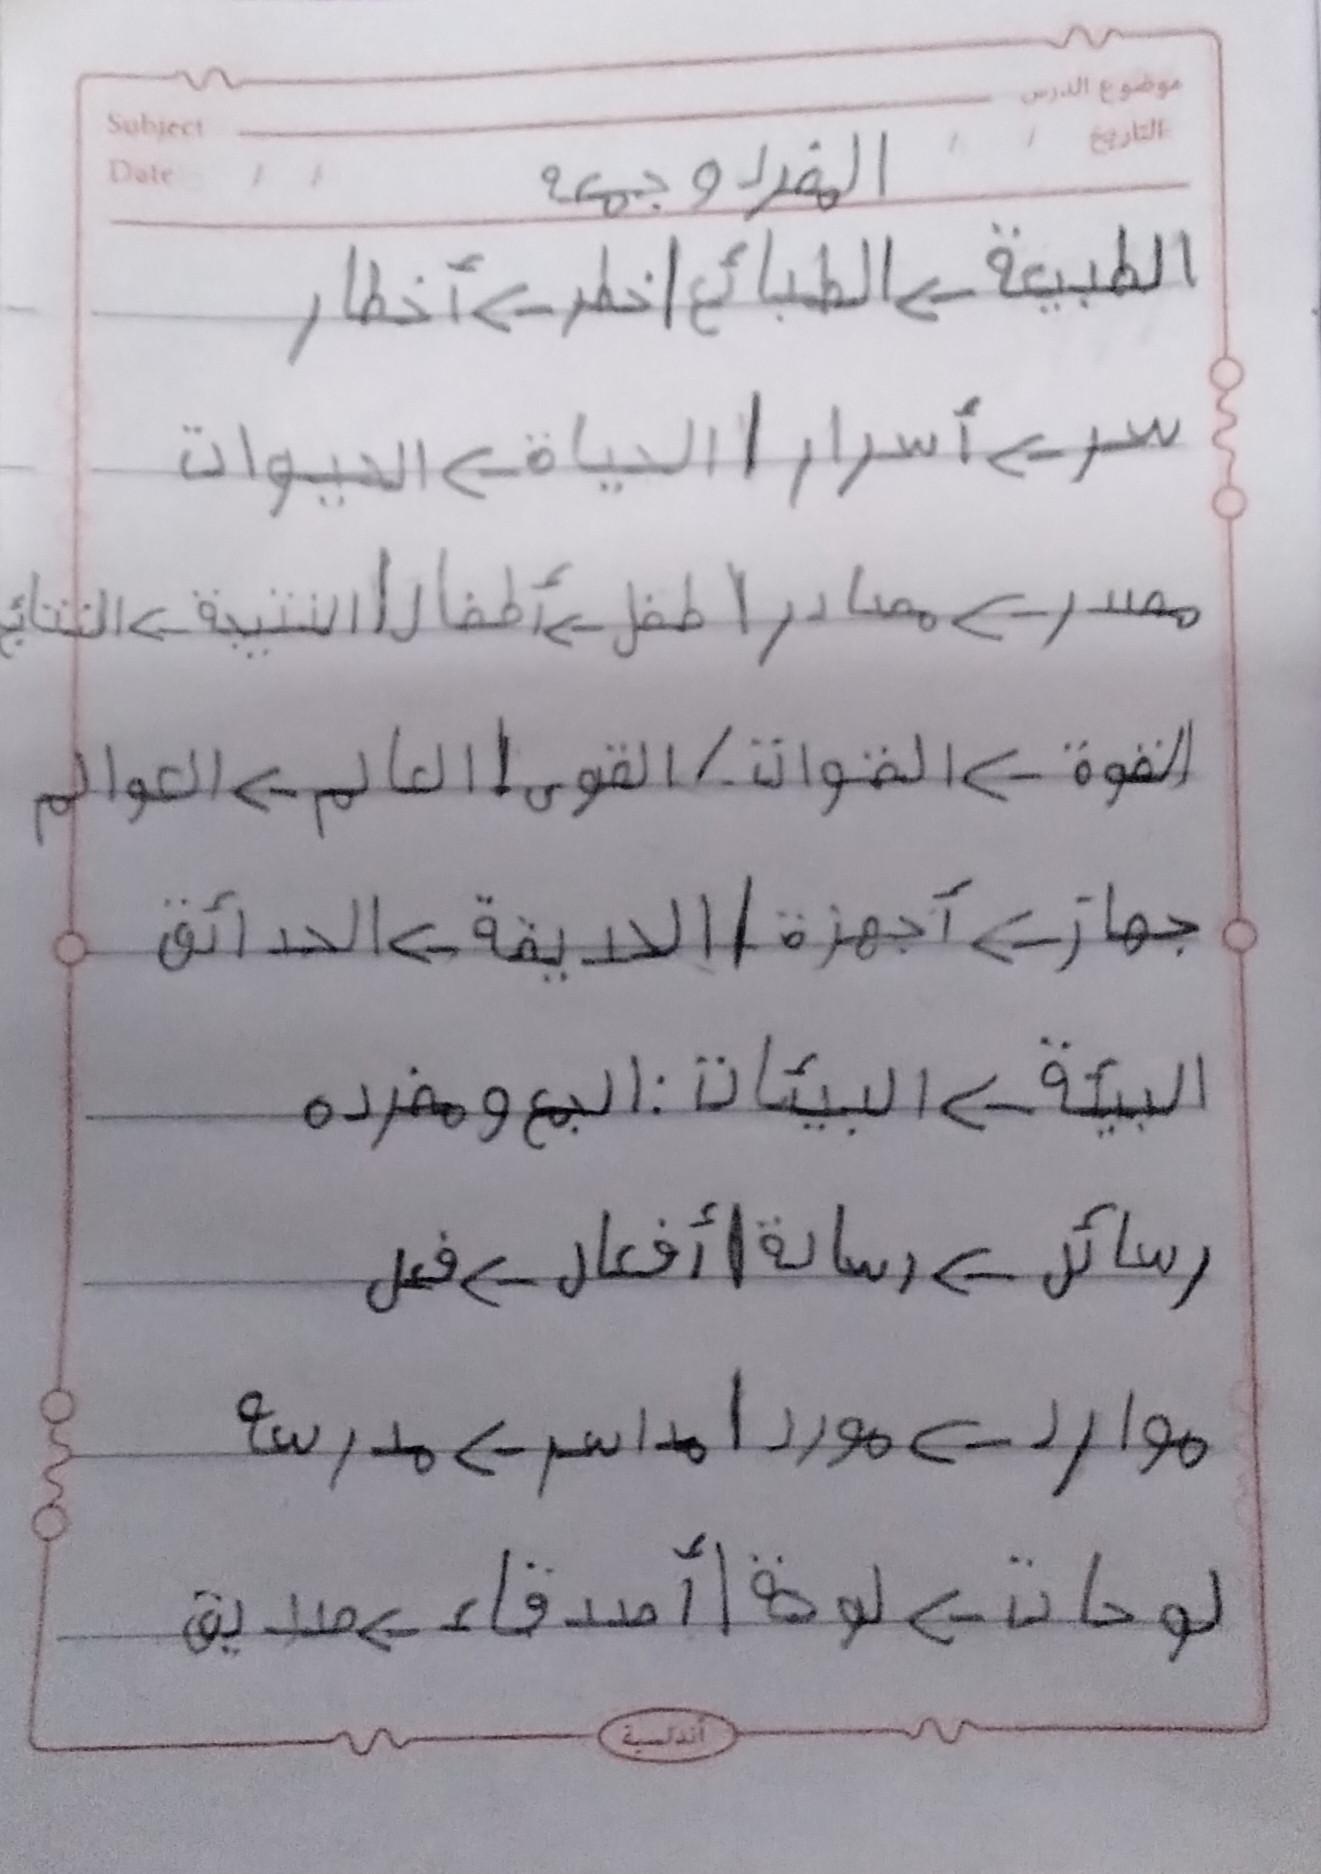 موضوع الدرس Subject
التاريخ / / Date / /
المفرد و جمعه
الطبيعة -> الطبائع / خطر -> أخطار
سر -> أسرار / الحياة -> الحيوات
مصدر -> مصادر / طفل -> أطفال / النتيجة -> النتائج
القوة -> القوات / القوى / العالم -> العوالم
جهاز -> أجهزة / الحديقة -> الحدائق
البيئة -> البيئات : الجمع ومفرده
رسائل -> رسالة / أفعال -> فعل
موارد -> مورد / مداسر -> مدرسه
لوحات -> لوحة / أصدقاء -> صديق
أندلسية